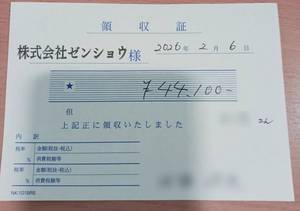 領収証
株式会社ゼンショウ様 2026年2月6日
★ ¥44,100-
但
上記正に領収いたしました
内訳
税率 金額(税抜・税込)
% 消費税額等
税率 金額(税抜・税込)
% 消費税額等